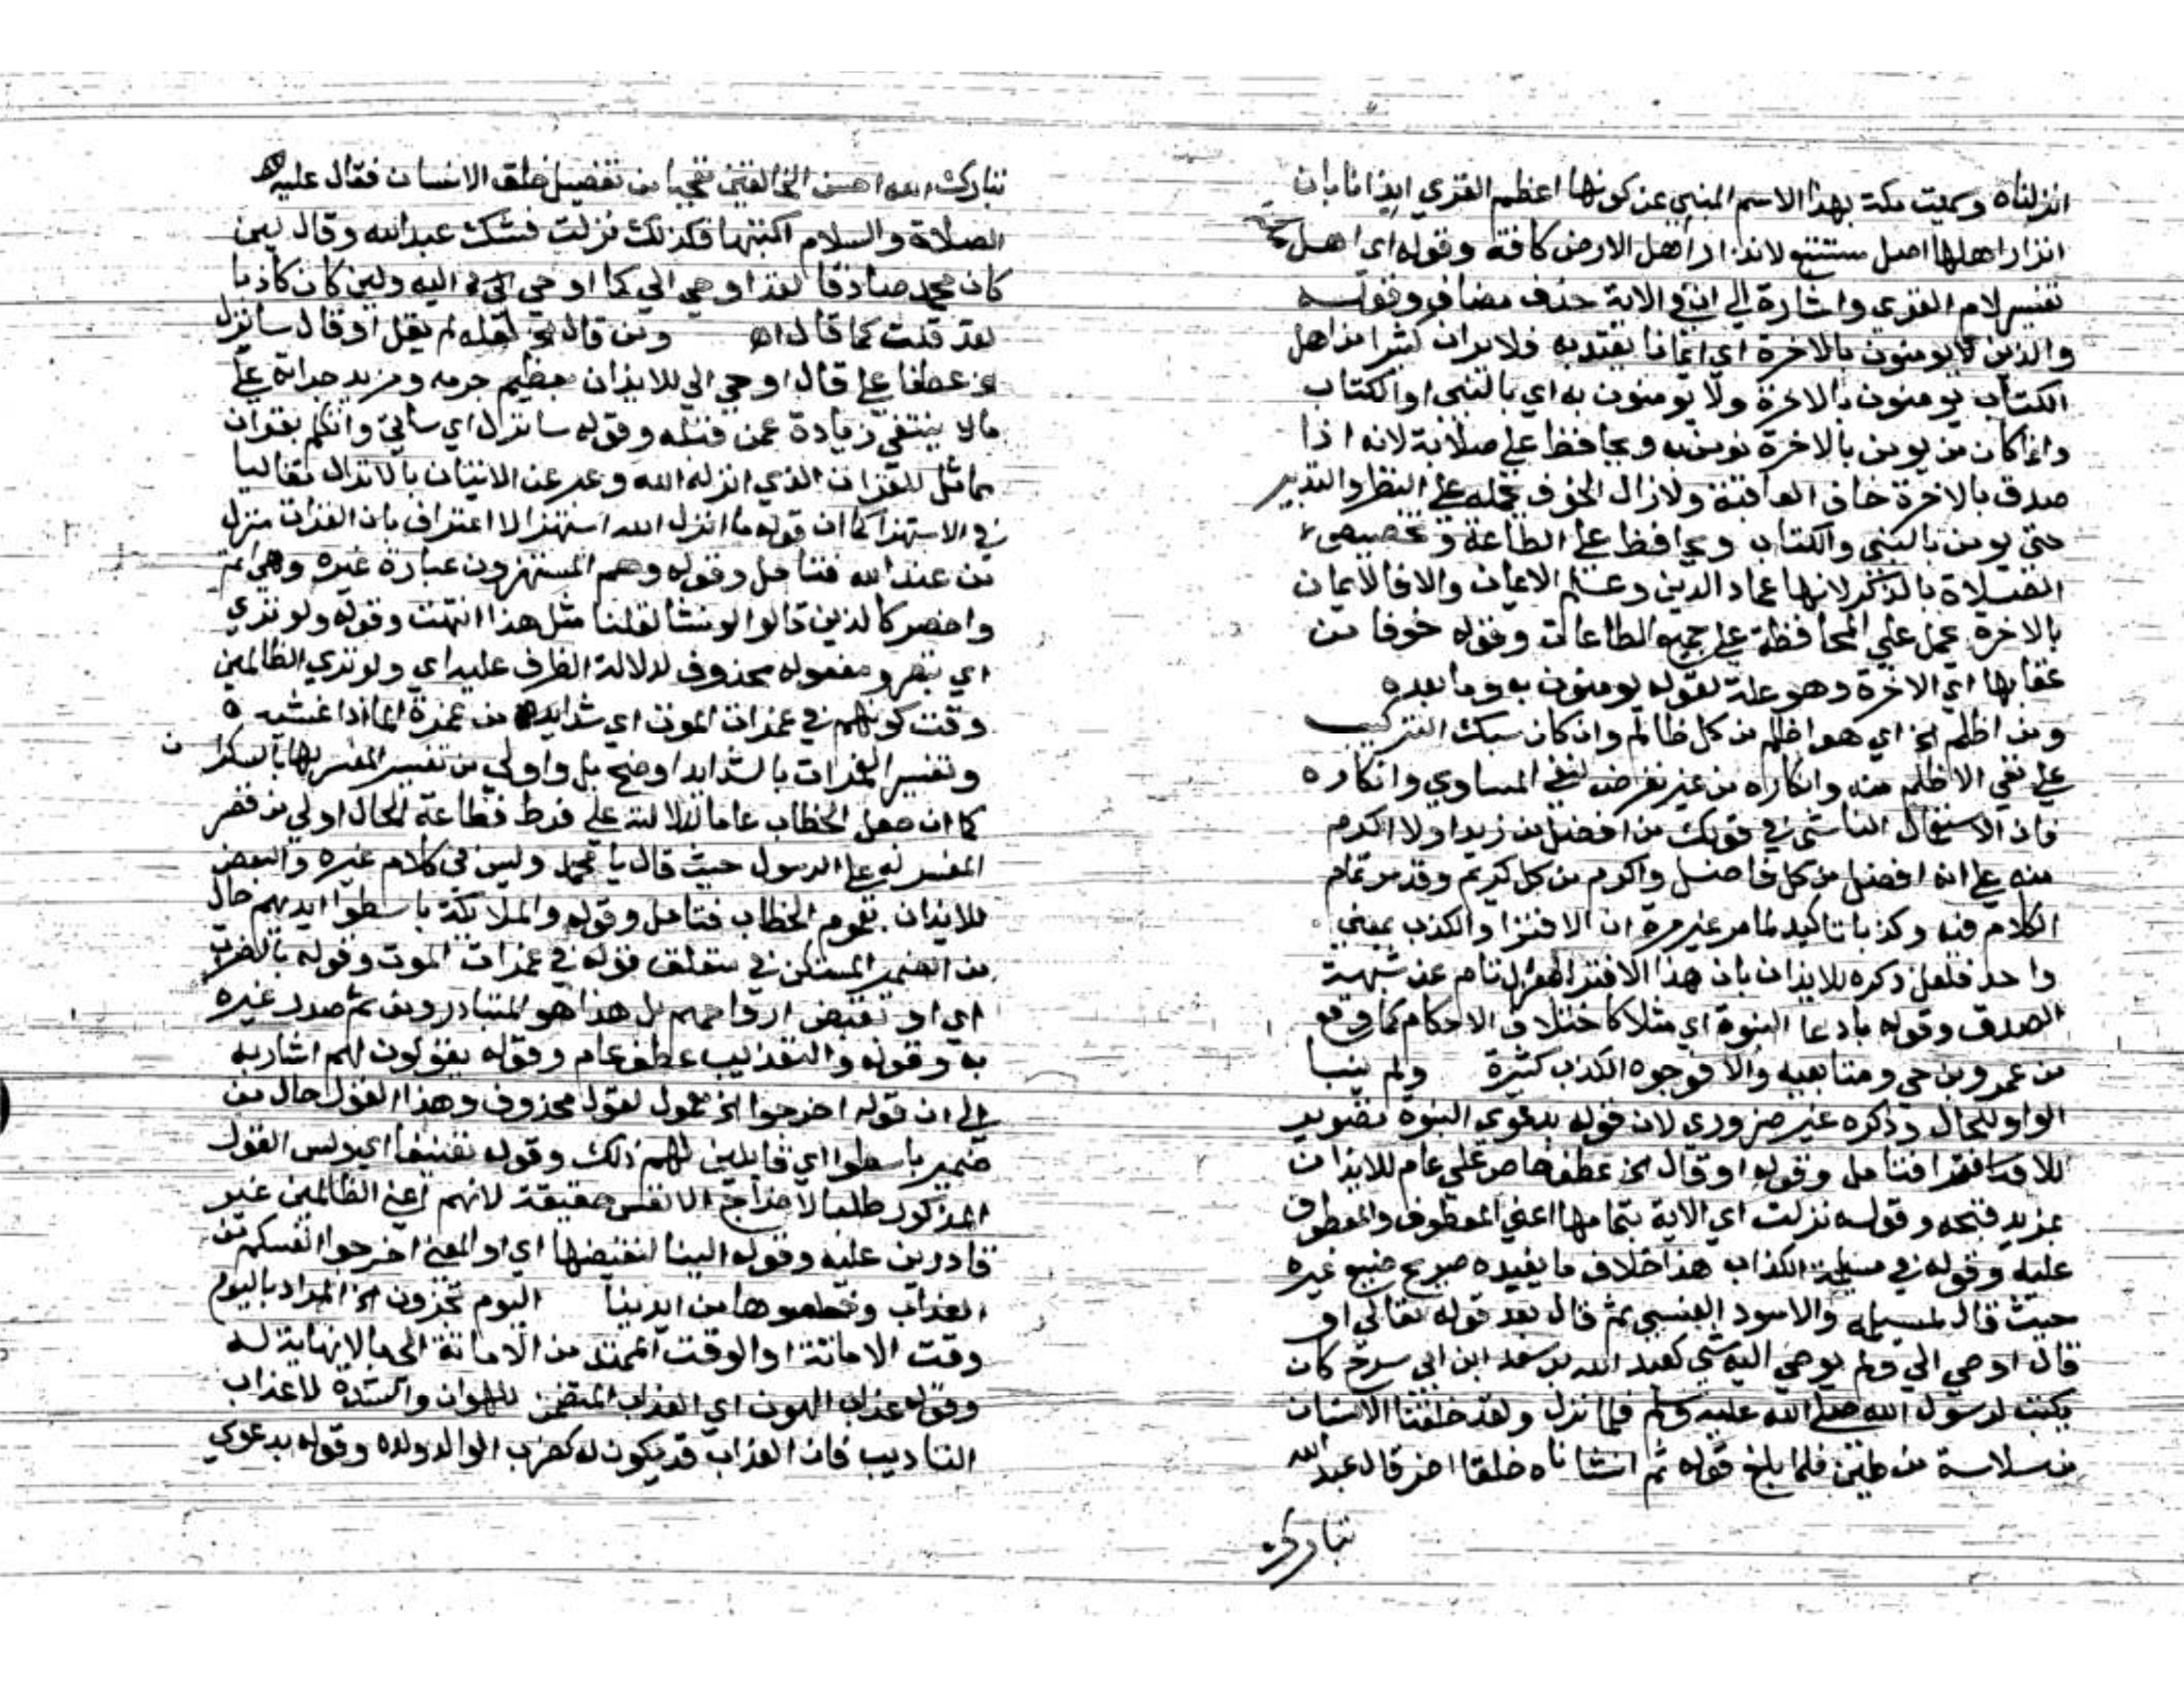 انزلناه وسميت مكة بهذا الاسم المنبي عن كونها اعظم القري ايذانا بان
انذار اهلها اصل مستتبع لانذار اهل الارض كافة وقوله اي اهل
تفسير لام القري واشارة الي ان في الاية حذف مضاف وقوله
والذين لا يومنون بالاخرة اي ايمانا يعتد به فلا يرد ان كثيرا من اهل
الكتاب يومنون بالاخرة ولا يومنون به اي بالنبي او الكتاب
واذا كان من يومن بالاخرة يومن به ويحافظ علي صلاته لانه اذا
صدق بالاخرة خاف العاقبة ولا زال الخوف يحمله علي النظر والتدبر
حتي يومن بالنبي والكتاب ويحافظ علي الطاعة وتخصيص
الصلاة بالذكر لانها عماد الدين وعلم الايمان والا فالايمان
بالاخرة يحمل علي المحافظة علي جميع الطاعات وقوله خوفا من
عقابها اي الاخرة وهو علة لقوله يومنون به وما بعده
ومن اظلم الخ اي هو اظلم من كل ظالم وان كان سبك التركيب
علي نفي الاظلم منه وانكاره من غير تعرض لنفي المساوي وانكاره
فان الاستعمال الفاشي في قولك من افضل من زيد او لا اكرم
منه علي انه افضل من كل فاضل واكرم من كل كريم وقد مر تمام
الكلام فيه وكذبا تاكيد لما مر غير مرة ان الافترا والكذب بمعني
واحد فلعل ذكره للايذان بان هذا الافترا عن شبهة
الصدق وقوله بادعا النبوة اي مثلا كاختلاف الاحكام كما وقع
من عمرو بن حي ومتابعيه والا فوجوه الكذب كثيرة ولم ينبا
الواو للحال وذكره غير ضروري لان قوله بدعوي النبوة تصوير
للا فتامل وقوله او قال الخ عطف خاص علي عام للايذان
بمزيد قبحه وقوله نزلت اي الاية بتمامها اعني المعطوف والمعطوف
عليه وقوله في مسيلمة الكذاب هذا خلاف ما يفيده صريح صنيع غيره
حيث قال لمسيلمه والاسود العنسي ثم قال بعد قوله تعالي او
قال اوحي الي ولم يوحي اليه شي كعبد الله بن سعد ابن ابي سرح كان
يكتب لرسول الله صلي الله عليه وسلم فلما نزل ولقد خلقنا الانسان
من سلالة من طين فلما بلغ قوله ثم انشاناه خلقا اخر قال عبد الله
تبارك
تبارك الله احسن الخالقين تعجبا من تفصيل خلق الانسان فقال عليه
الصلاة والسلام اكتبها فكذلك نزلت فشك عبد الله وقال لين
كان محمد صادقا لقد اوحي الي كما اوحي اليه ولين كان كاذبا
لقد قلت كما قال اه ومن قال الخ لعله لم يقل او قال سانزل
الخ عطفا علي قال اوحي الي للايذان بعظيم جرمه ومزيد جراته علي
ما لا ينبغي زيادة عمن قبله وقوله سانزل اي ساتي وانكلم بقران
مماثل للقران الذي انزله الله وعبر عن الاتيان بالانزال تغاليا
في الاستهزا كما ان قوله ما انزل الله استهزا لا اعتراف بان القران منزل
من عند الله فتامل وقوله وهم المستهزون عبارة غيره وهي اتم
واخصر كالذين قالوا لو نشا لقلنا مثل هذا انتهت وقوله ولو تري
اي تبصر ومفعوله محذوف لدلالة الظرف عليه اي ولو تري الظالمين
وقت كونهم في غمرات الموت اي شدايده من غمرة الما اذا غشيه
وتفسير الغمرات بالشدايد اوضح بل واولي من تفسير المفسر لها بالسكرات
كما ان جعل الخطاب عاما للدلالة علي فرط فظاعة الحال اولي من قصر
المفسر له علي الرسول حيث قال يا محمد وليس في كلام غيره والتعرض
للايذان بعموم الخطاب فتامل وقوله والملايكة باسطوا ايديهم حال
من الضمير المستكن في متعلق قوله في غمرات الموت وقوله بالضرب
اي او تقبض ارواحهم بل هذا هو المتبادر ومن ثم صدر غيره
به وقوله والتعذيب عطف عام وقوله يقولون لهم اشار به
الي ان قوله اخرجوا الخ معمول لقول محذوف وهذا القول حال من
ضمير باسطوا اي قايلين لهم ذلك وقوله تعنيفا اي وليس القول
المذكور طلبا لاخراج الانفس حقيقة لانهم اعني الظالمين غير
قادرين عليه وقوله الينا لنقبضها اي او المعني اخرجوا انفسكم من
العذاب وخلصوها من ايدينا اليوم تجزون الخ المراد باليوم
وقت الاماتة او الوقت الممتد من الاماتة الي ما لا نهاية له
وقوله عذاب الهون اي العذاب المتضمن للهوان والشدة لا عذاب
التاديب فان العذاب قد يكون له كضرب الوالد ولده وقوله بدعوي